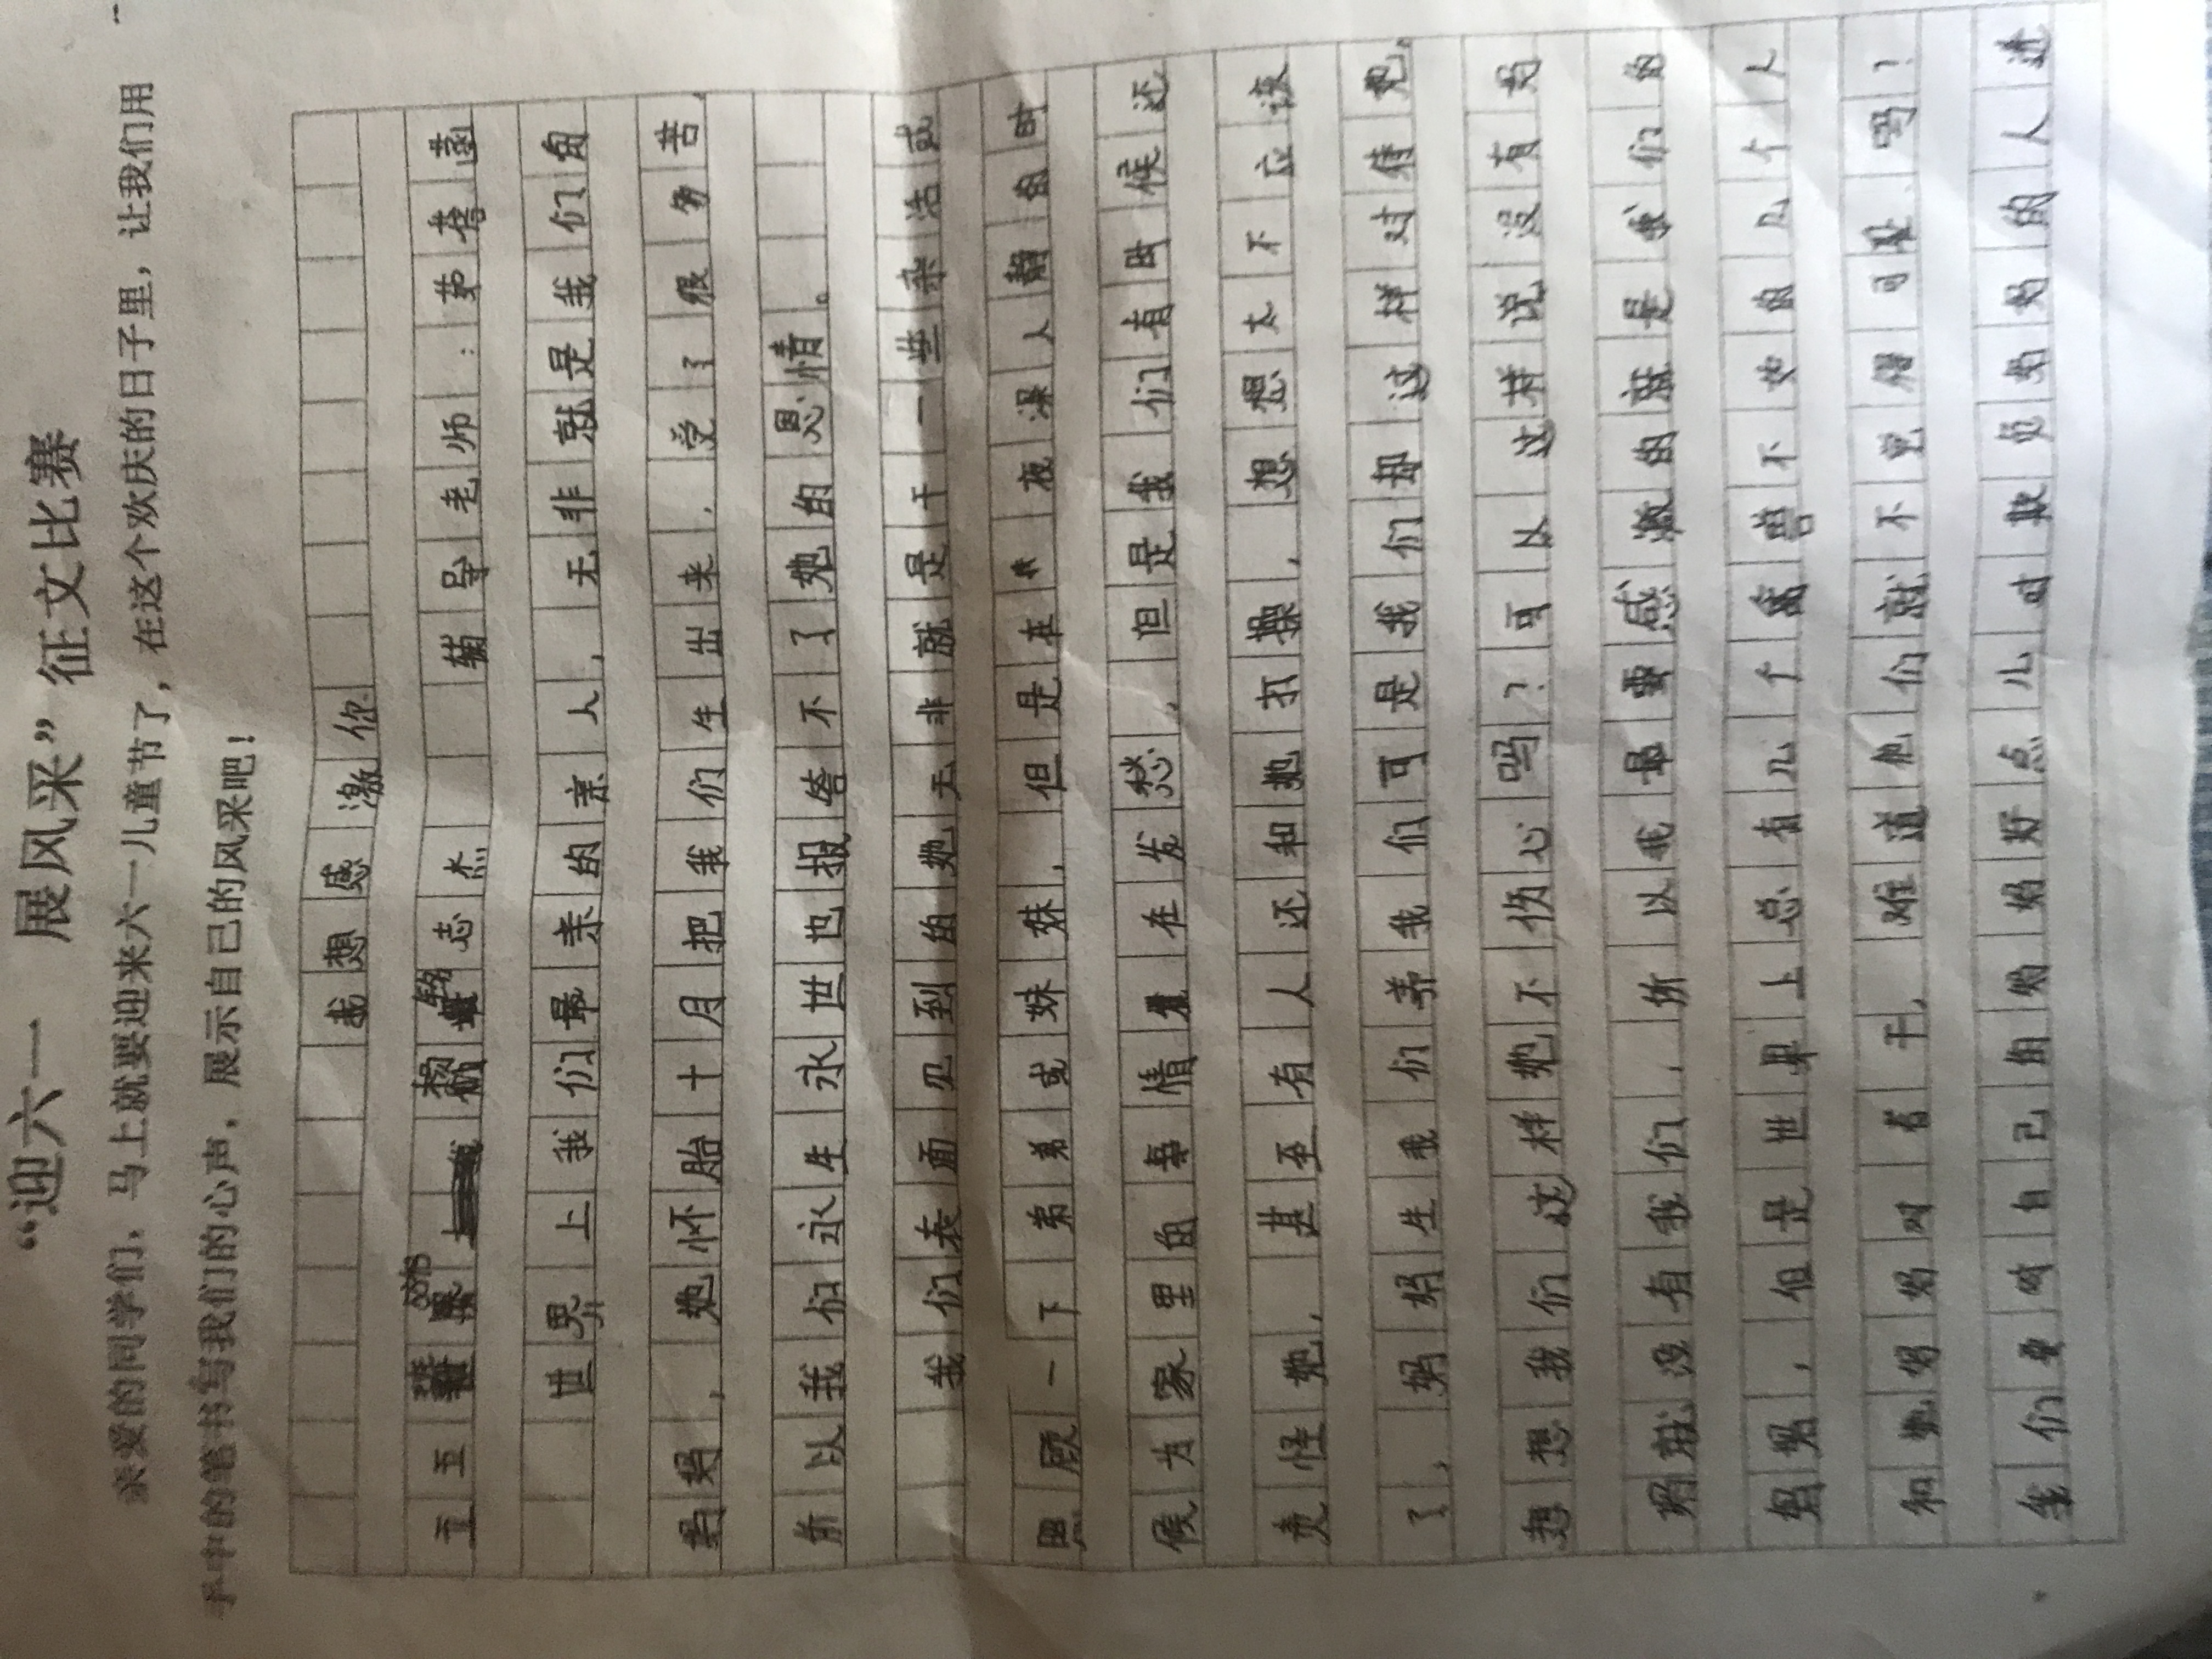 “迎六一　展风采”征文比赛
亲爱的同学们，马上就要迎来六一儿童节了，在这个欢庆的日子里，让我们用
手中的笔书写我们的心声，展示自己的风采吧！
我想感激你
五 杨 铭志杰 辅导老师：茹蓓蕾
世界上我们最亲的亲人，无非就是我们的
妈妈，她怀胎十月把我们生出来，受了很多苦，
所以我们永生永世也报答不了她的恩情。
我们表面见到的她无非就是干一些杂活或
照顾一下弟弟或妹妹，但是在夜深人静的时
候为家里的事情发愁，但是我们有时候还
责怪她，甚至有人还和她打操，想想太不应该
了，妈妈生我们养我们可是我们却这样对待她，
想想我们这样她不伤心吗？可以这样说没有妈
妈就没有我们，所以我最要感激的就是我们的
妈妈，但是世界上总有几个禽兽不如的几个人
和她妈妈对着干，难道他们就不觉得可耻吗？
自己的妈妈好点儿对欺负妈妈的人进